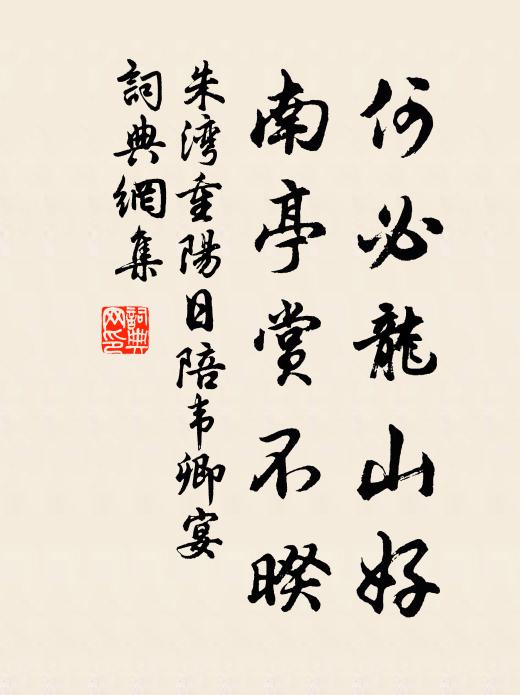 何必龍山好
南亭賞不暌
朱湾重陽日陪韦卿宴
詞典網集
詞典网印